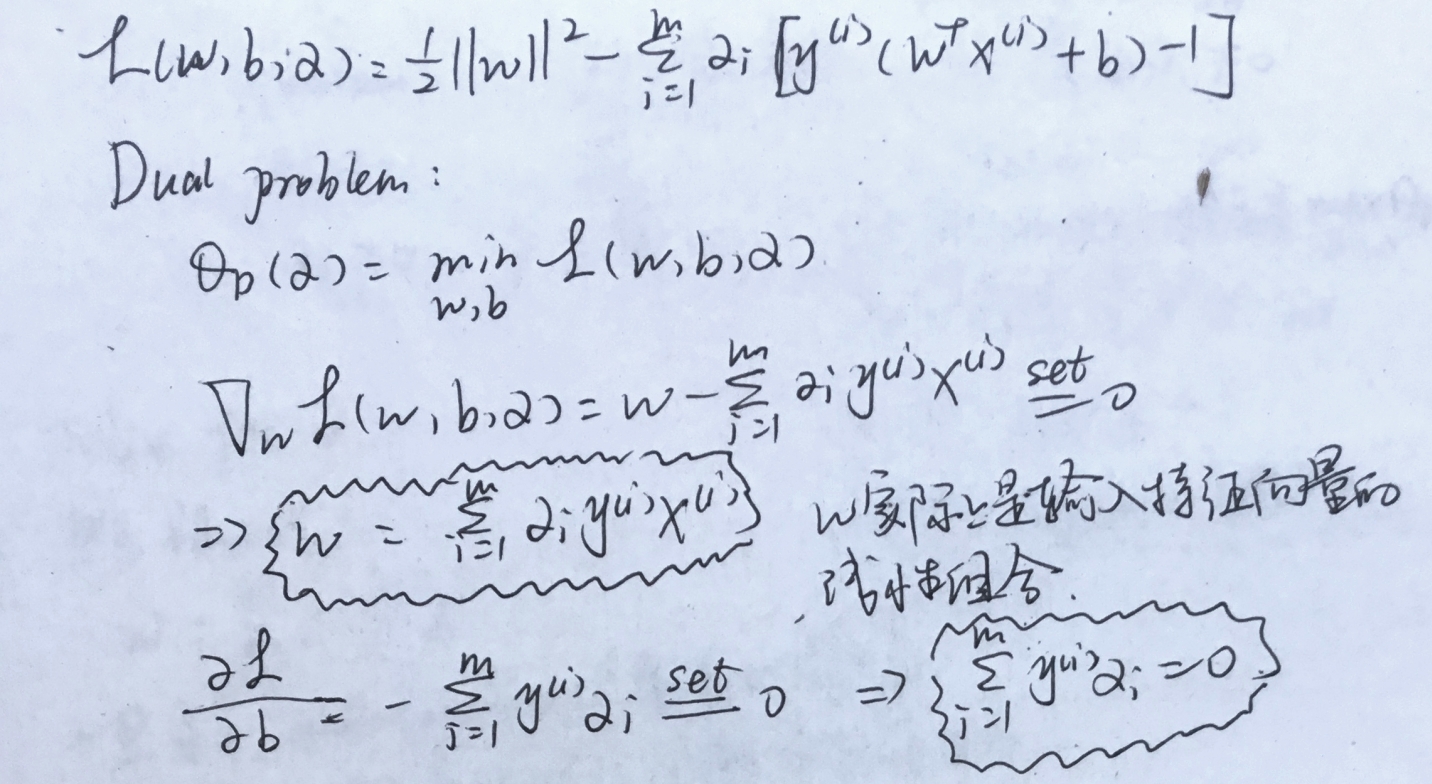 L(w,b,α) = 1/2 ||w||² - Σ_{i=1}^{m} α_i [y^{(i)}(w^T x^{(i)} + b) - 1]
Dual problem:
θ_D(α) = min_{w,b} L(w,b,α)
∇_w L(w,b,α) = w - Σ_{i=1}^{m} α_i y^{(i)} x^{(i)} set= 0
=> w = Σ_{i=1}^{m} α_i y^{(i)} x^{(i)} w实际上是输入特征向量的
线性组合.
∂L/∂b = - Σ_{i=1}^{m} y^{(i)} α_i set= 0 => Σ_{i=1}^{m} y^{(i)} α_i = 0